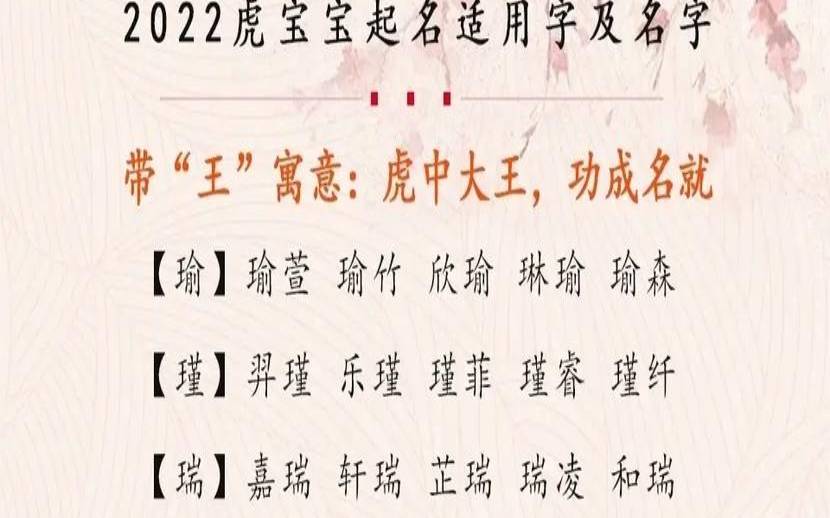 2022虎宝宝起名适用字及名字
带“王”寓意：虎中大王，功成名就
【瑜】瑜萱 瑜竹 欣瑜 琳瑜 瑜森
【瑾】羿瑾 乐瑾 瑾菲 瑾睿 瑾纤
【瑞】嘉瑞 轩瑞 芷瑞 瑞凌 和瑞